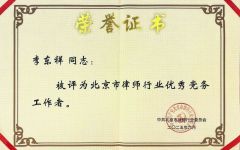 荣誉证书
李东祥 同志：
被评为北京市律师行业优秀党务
工作者。
中共北京市律师行业委员会
二〇二五年六月